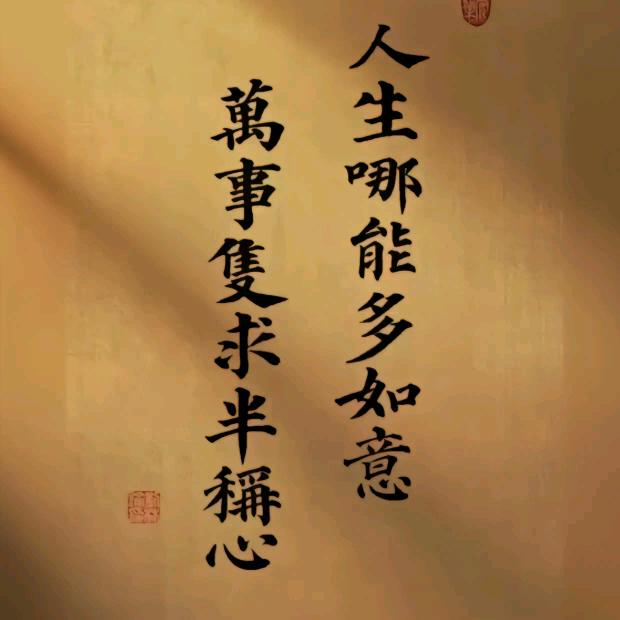 人生哪能多如意
萬事隻求半稱心